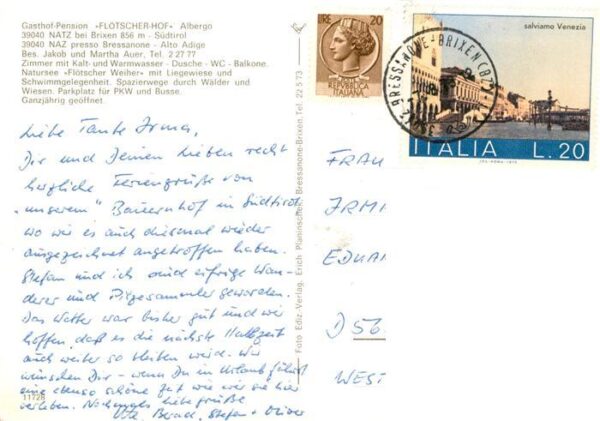 Gasthof-Pension »FLÖTSCHER-HOF« Albergo
39040 NATZ bei Brixen 856 m - Südtirol
39040 NAZ presso Bressanone - Alto Adige
Bes. Jakob und Martha Auer. Tel. 2 77
Zimmer mit Kalt- und Warmwasser - Dusche - WC - Balkone.
Natursee »Flötscher Weiher« mit Liegewiese und
Schwimmgelegenheit. Spazierwege durch Wälder und
Wiesen. Parkplatz für PKW und Busse.
Ganzjährig geöffnet.
Liebe Tante Irma,
Dir und Deinen Lieben recht
herzliche Feriengrüße von
„unserem" Bauernhof in Südtirol
wo wir es auch diesmal wieder
ausgezeichnet angetroffen haben.
Stefan und ich sind eifrige Wan-
derer und Pilzesammler geworden.
Das Wetter war bisher gut und wir
hoffen, daß es die nächste Halbzeit
auch weiter so bleiben wird. Wir
wünschen Dir - wenn Du in Urlaub fährst
eine ebenso schöne Zeit wie wir sie hier
verleben. Nochmals liebe Grüße
Bernd, Stefan + Oliver
11728
Foto Ediz.-Verlag. Erich Planinschek, Bressanone-Brixen. Tel. 22 5 73
LIRE 20
REPVBBLICA
ITALIANA
salviamo Venezia
ITALIA L.20
BRESSANONE-BRIXEN (BZ)
FRAU
IRMI
EDUAR
D 56
WEST